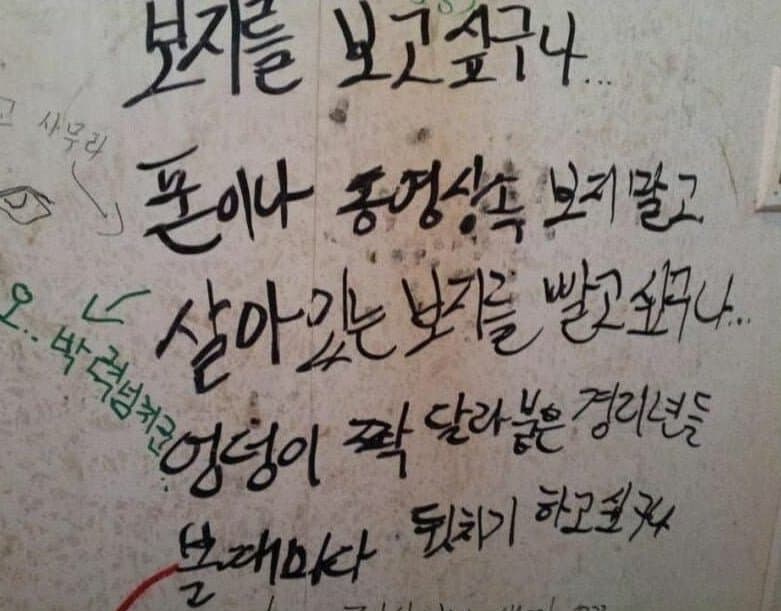 보지를 보고싶구나...
고 사무라
폰이나 동영상속 보지말고
살아있는 보지를 빨고싶구나...
오.. 박력넘치군..
엉덩이 짝 달라붙은 경리년들
볼때마다 뒷치기 하고싶구나